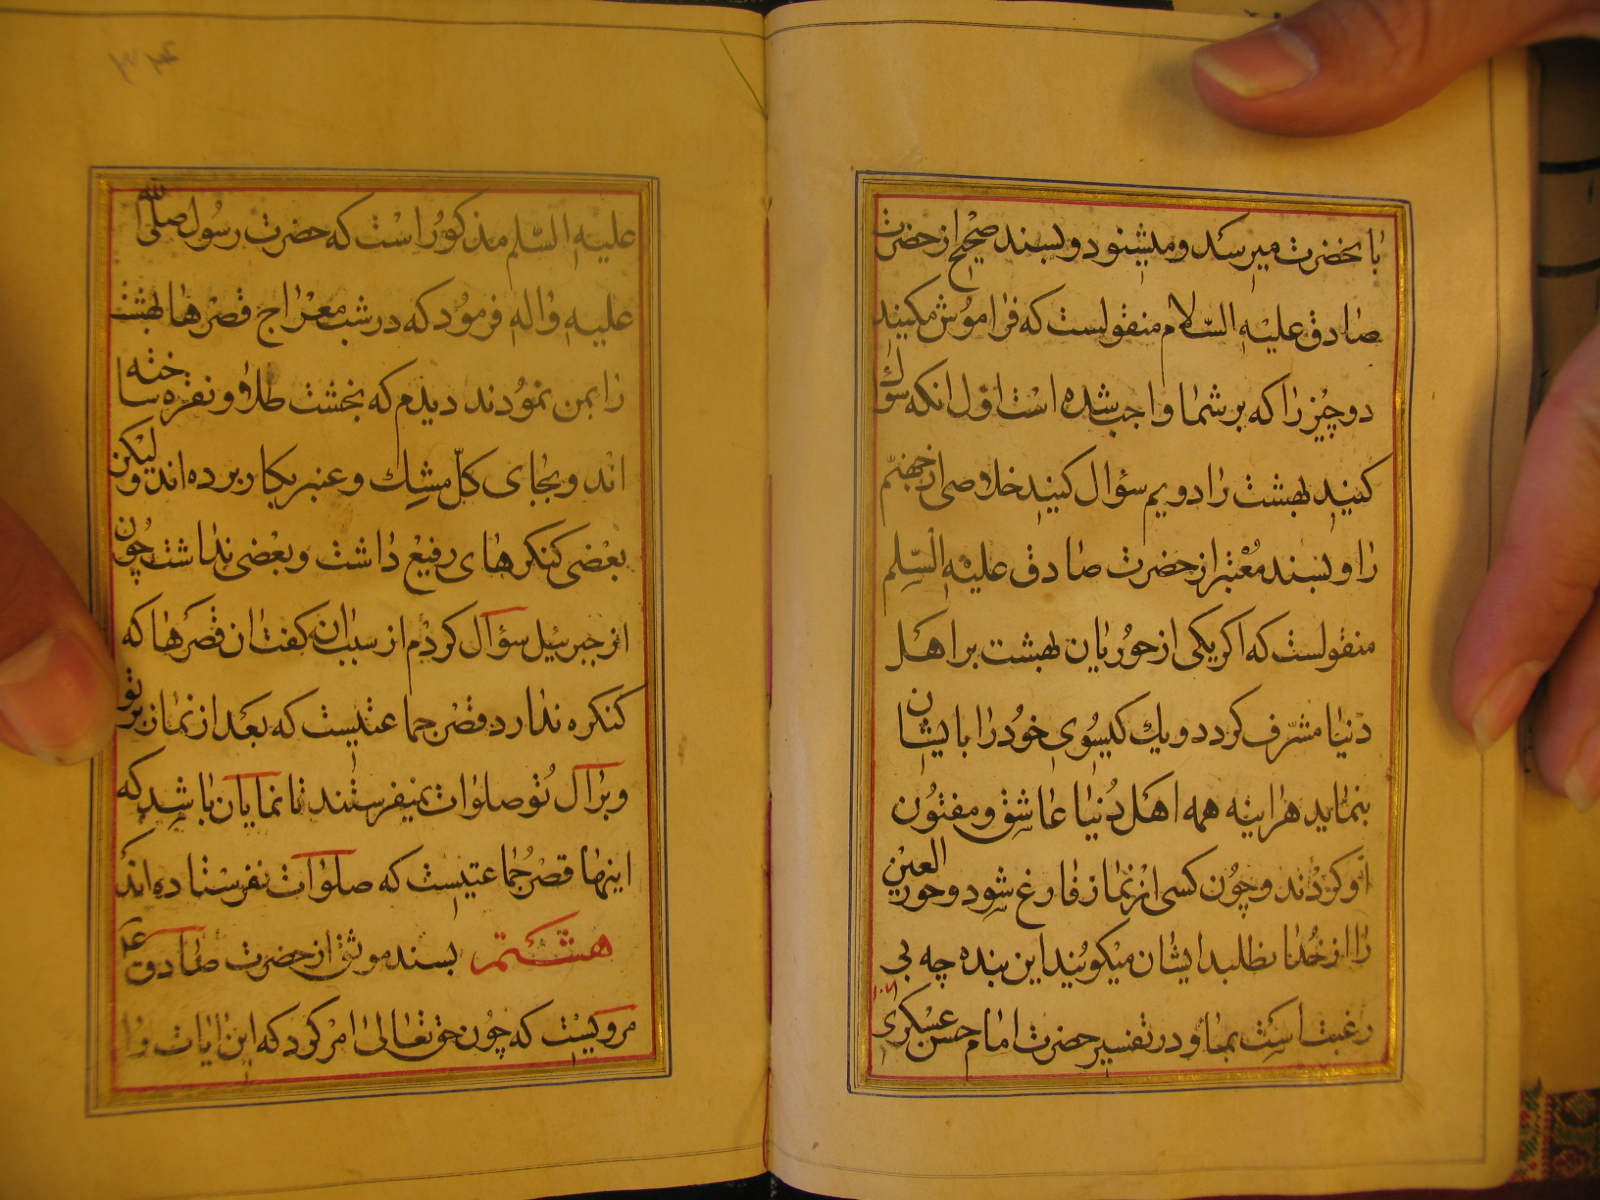 بانحضرت میرسد و میشنود و بسند صحیح از حضرت
صادق علیه السلام منقولست که فراموش مکنید
دو چیز را که بر شما واجب شده است اول آنکه سوال
کنید بهشت را دویم سؤال کنید خلاصی از جهنم
را و بسند معتبر از حضرت صادق علیه السلم
منقولست که اکر یکی از حوریان بهشت بر اهل
دنیا مشرف کردد و یك کیسوی خود را بایشان
بنماید هراینه همه اهل دنیا عاشق و مفتون
او کردند و چون کسی از نماز فارغ شود و حور العین
را از خدا نطلبد ایشان میکویند این بنده چه بی
رغبت است بما و در تفسیر حضرت امام حسن عسکری
علیه السلم مذکور است که حضرت رسول صلی الله
علیه واله فرمود که در شب معراج قصرها بهشت
را بمن نمودند دیدم که بخشت طلا و نقره ساخته
اند و بجای کل مشك و عنبر بکار برده اند ولیکن
بعضی کنکرهای رفیع داشت و بعضی نداشت چون
از جبرئیل سؤال کردم از سبب ان کفت ان قصرها که
کنکره ندارد قصر جماعتیست که بعد از نماز بر تو
و بر آل تو صلوات نمیفرستند تا نمایان باشد که
اینها قصر جماعتیست که صلوات نفرستاده اند
هشتم بسند موثق از حضرت صادق ع
مرویست که چون حق تعالی امر کرد که این ایات را